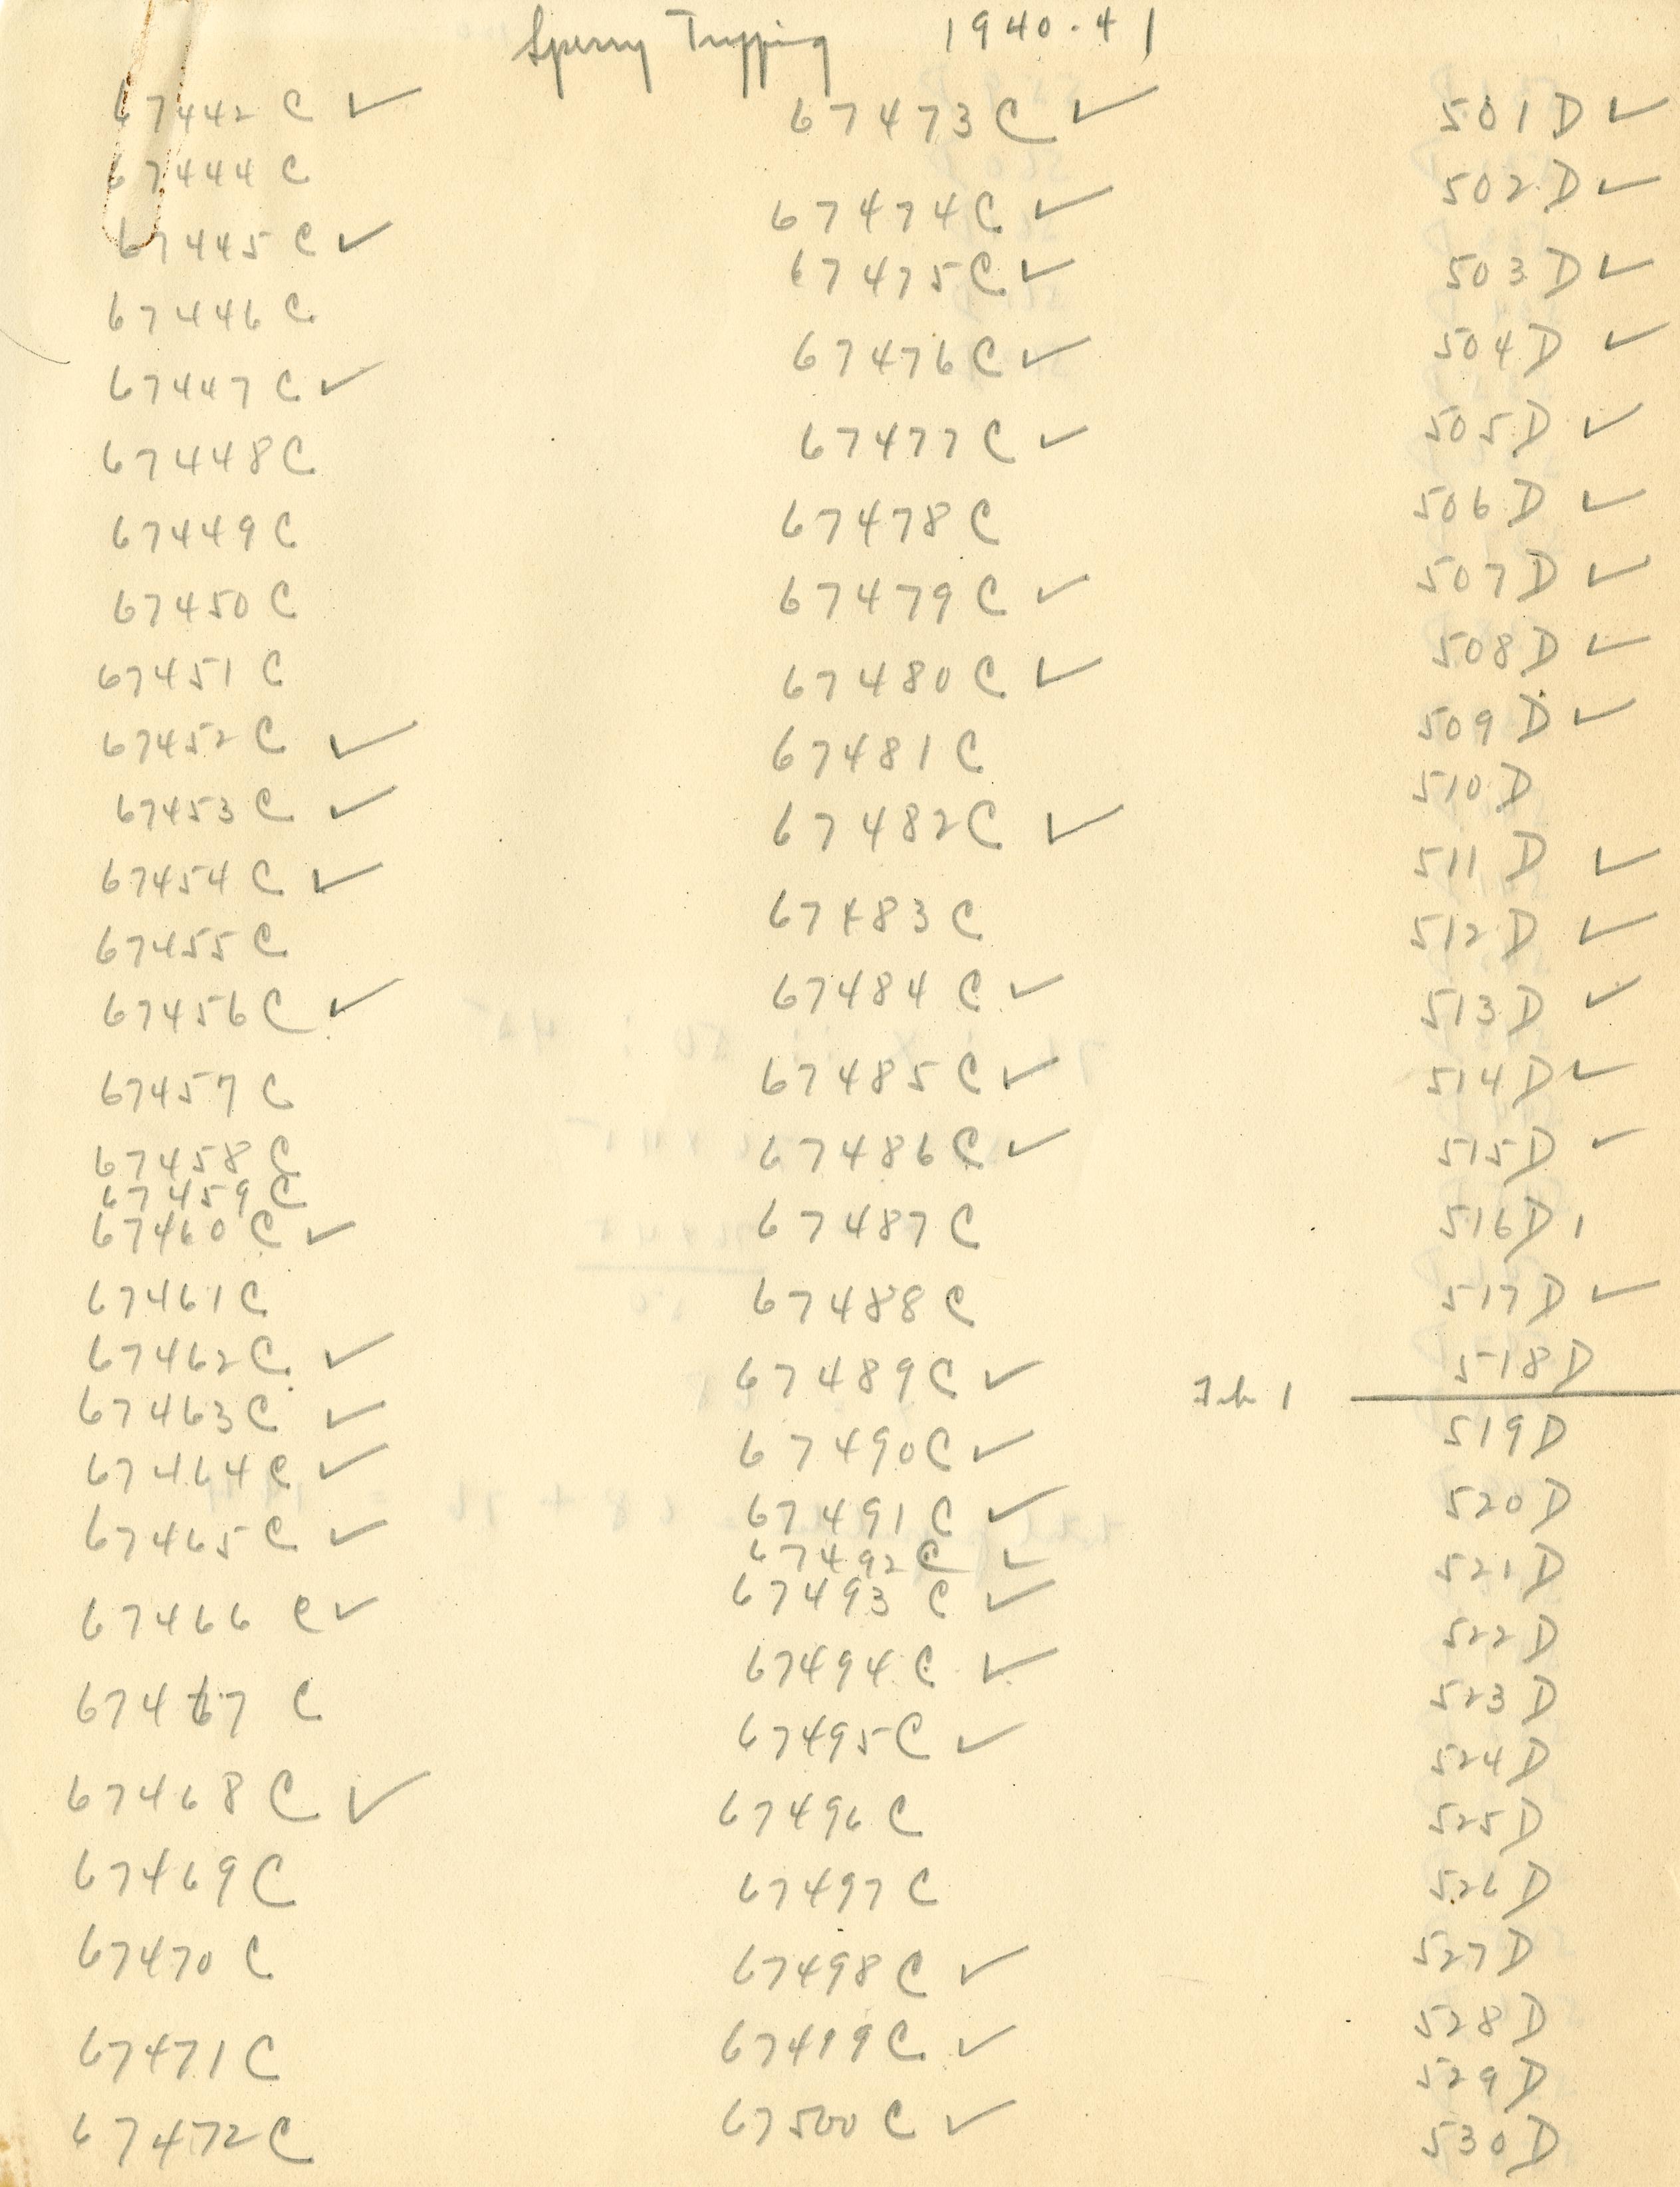 Sperry Trapping 1940-41
67442 C ✓
67444 C
67445 C ✓
67446 C
67447 C ✓
67448 C
67449 C
67450 C
67451 C
67452 C ✓
67453 C ✓
67454 C ✓
67455 C
67456 C ✓
67457 C
67458 C
67459 C
67460 C ✓
67461 C
67462 C ✓
67463 C ✓
67464 C ✓
67465 C ✓
67466 C ✓
67467 C
67468 C ✓
67469 C
67470 C
67471 C
67472 C
67473 C ✓
67474 C ✓
67475 C ✓
67476 C ✓
67477 C ✓
67478 C
67479 C ✓
67480 C ✓
67481 C
67482 C ✓
67483 C
67484 C ✓
67485 C ✓
67486 C ✓
67487 C
67488 C
67489 C ✓
67490 C ✓
67491 C ✓
67492 C ✓
67493 C ✓
67494 C ✓
67495 C ✓
67496 C
67497 C
67498 C ✓
67499 C ✓
67500 C ✓
501 D ✓
502 D ✓
503 D ✓
504 D ✓
505 D ✓
506 D ✓
507 D ✓
508 D ✓
509 D ✓
510 D
511 D ✓
512 D ✓
513 D ✓
514 D ✓
515 D ✓
516 D 1
517 D ✓
518 D
Feb 1
519 D
520 D
521 D
522 D
523 D
524 D
525 D
526 D
527 D
528 D
529 D
530 D